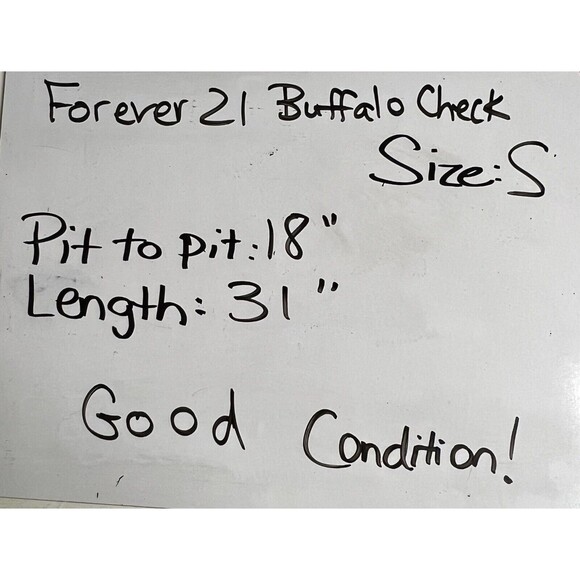 Forever 21 Buffalo Check
Size: S
Pit to pit: 18"
Length: 31"
Good Condition!